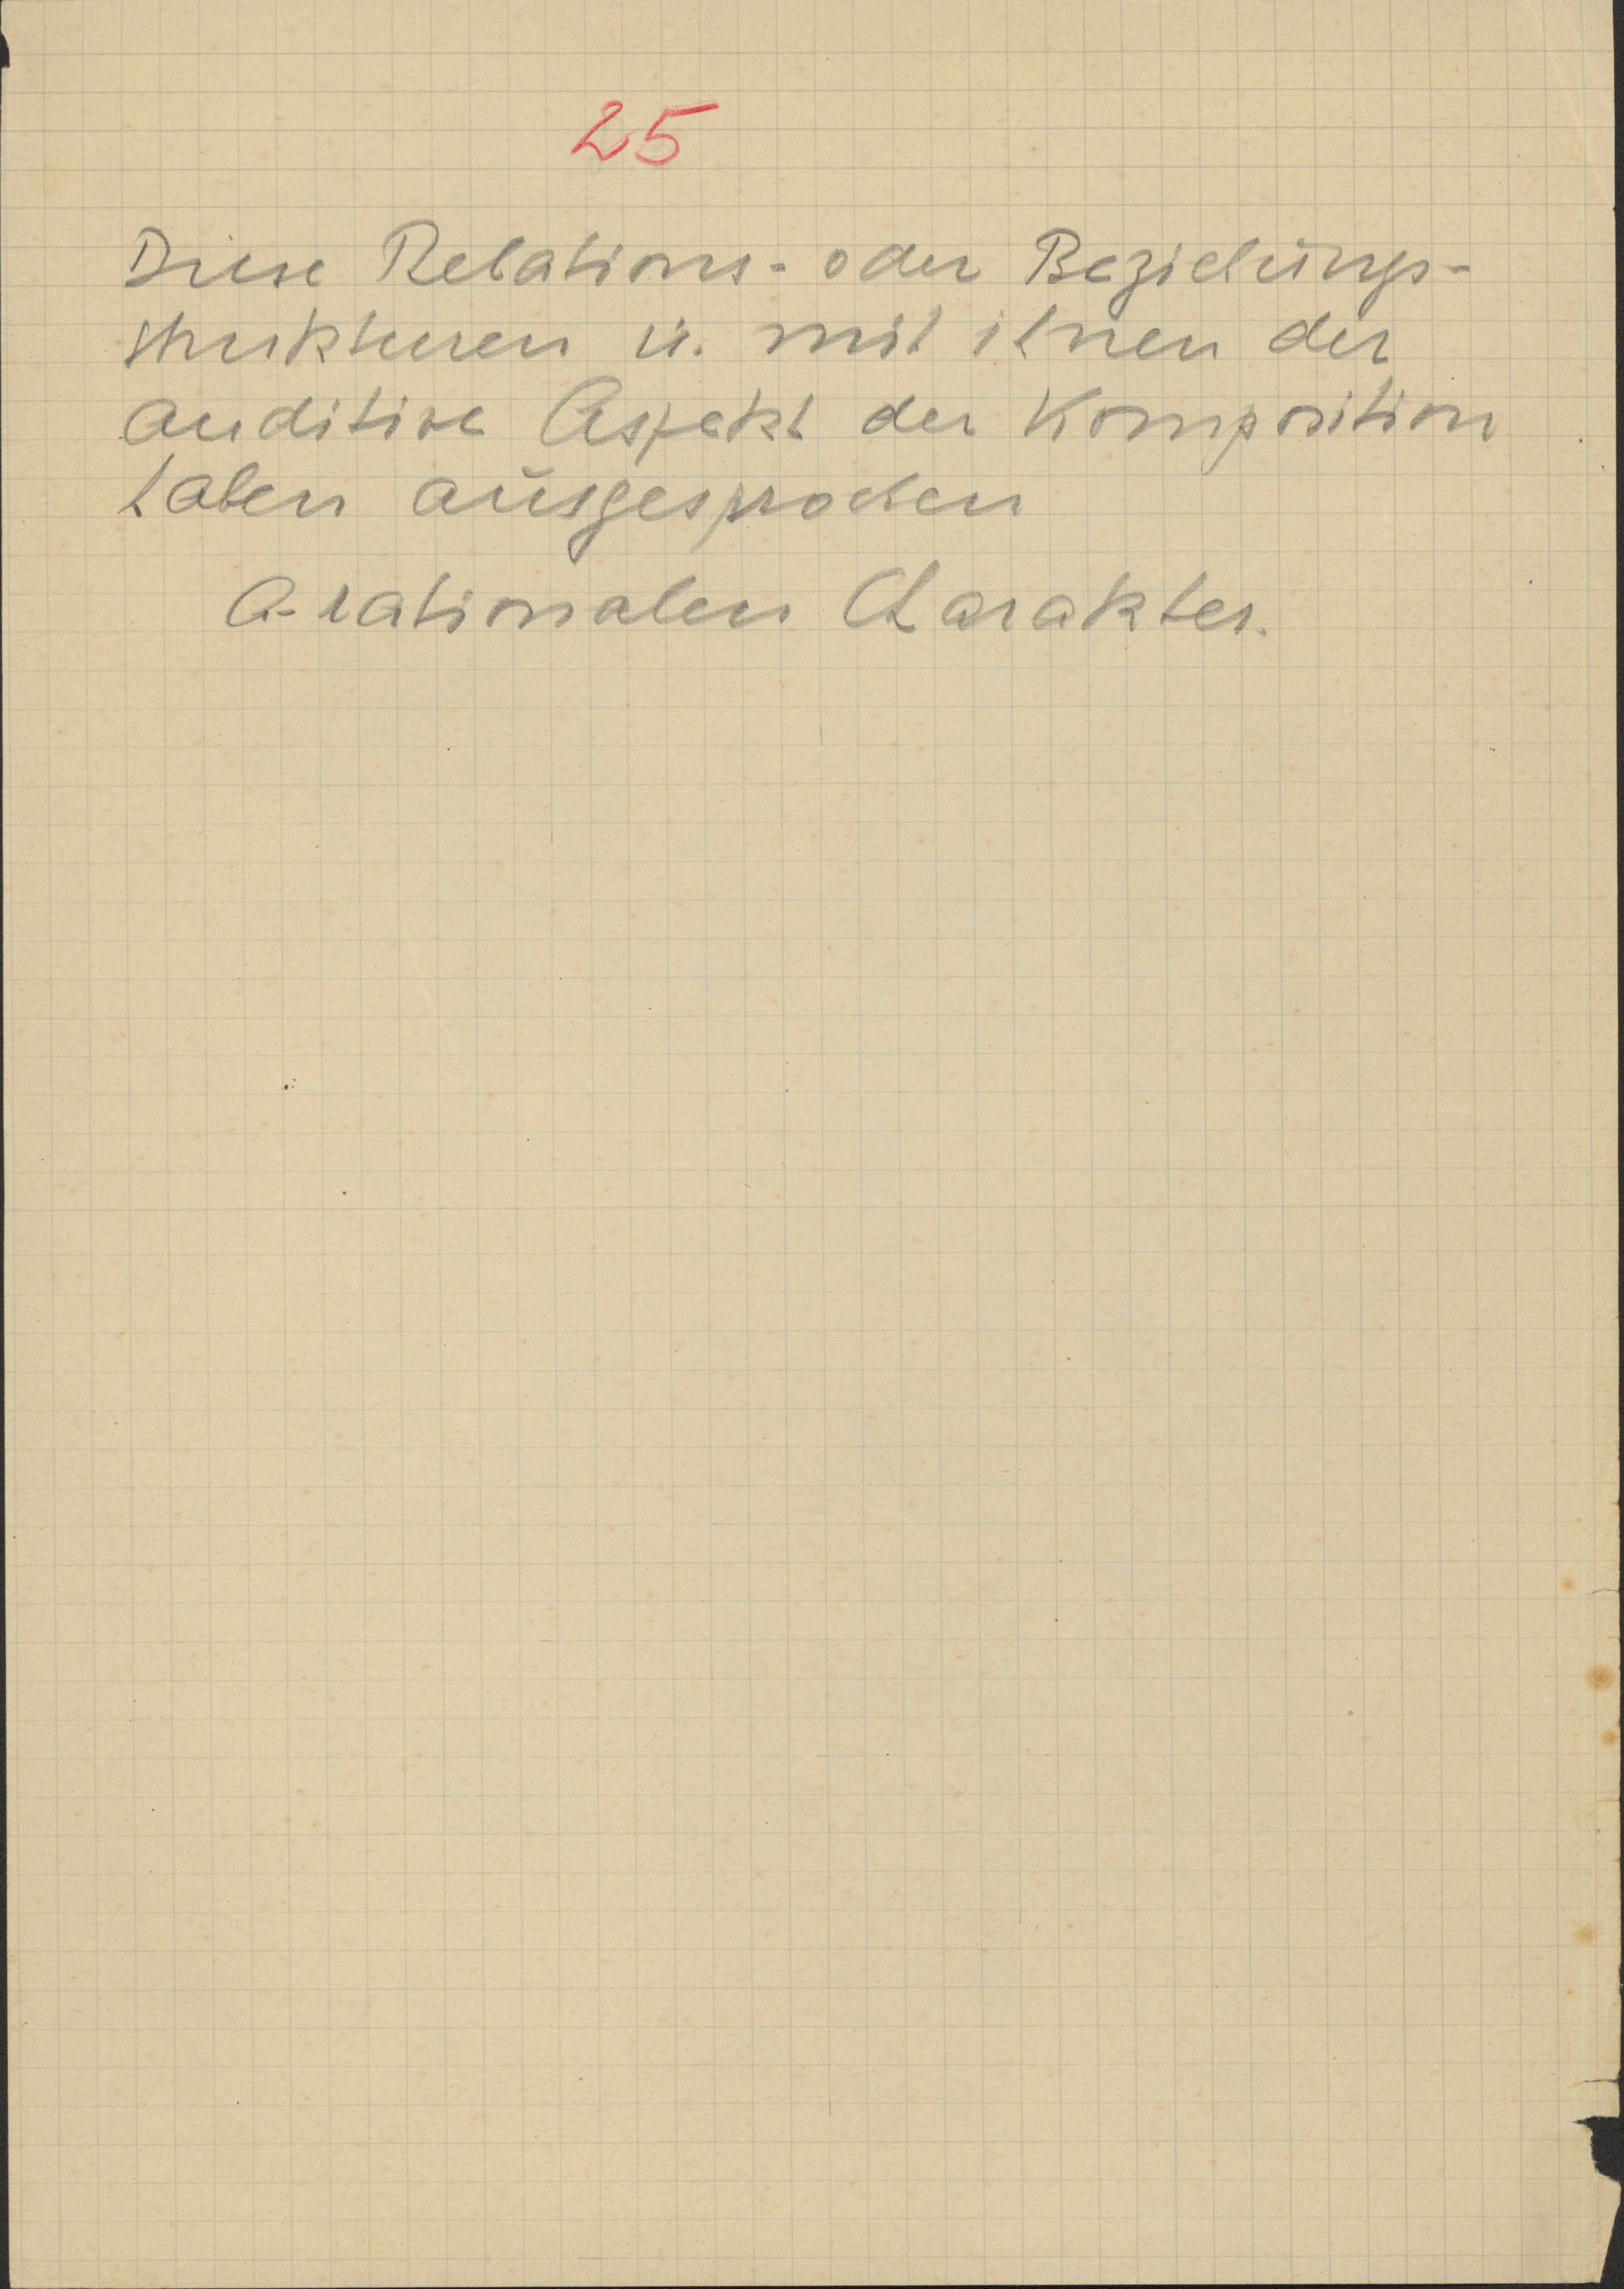 25
Diese Relations- oder Beziehungs-
strukturen u. mit ihnen der
auditive Aspekt der Komposition
haben ausgesprochen
a-rationalen Charakter.